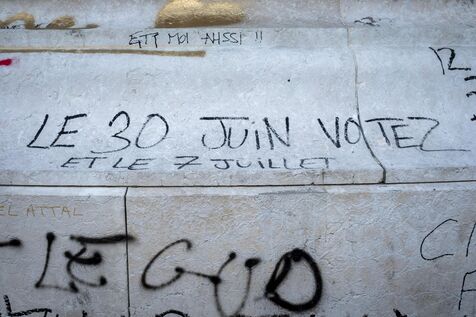 ET MOI AUSSI !!
12
LE 30 JUIN VOTEZ
ET LE 7 JUILLET
EL ATTAL
LE GUD